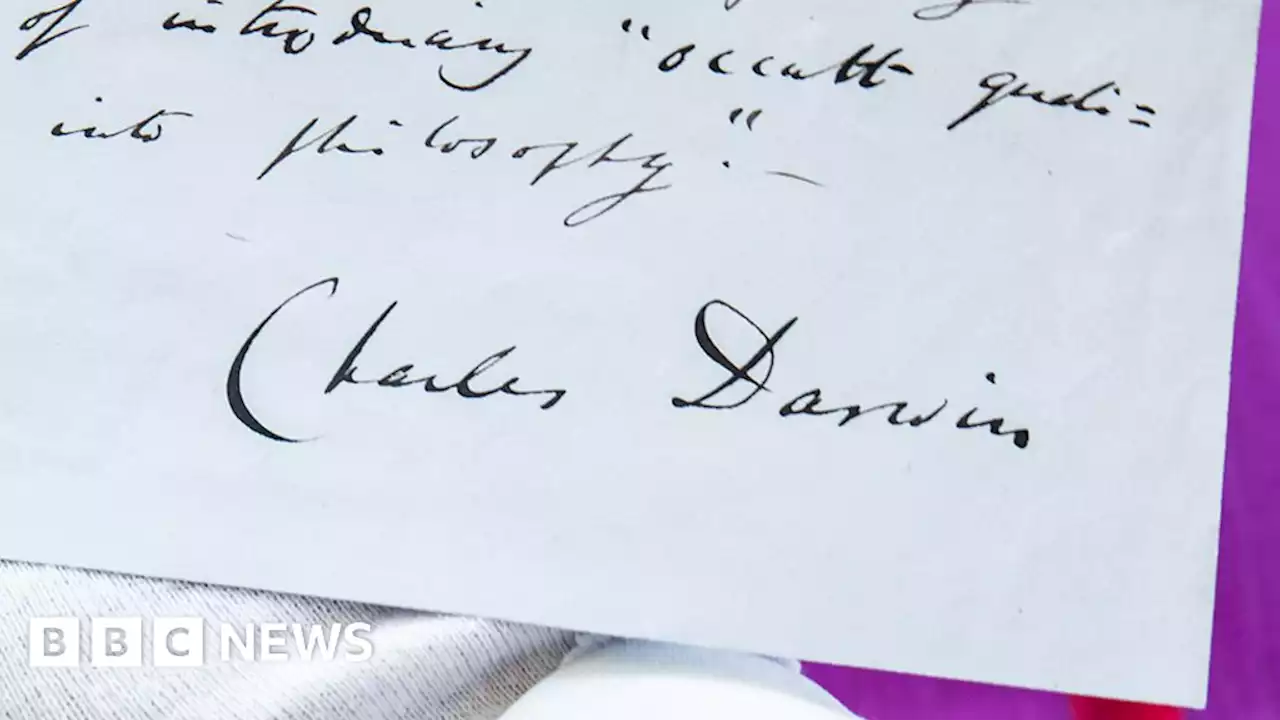 of introducing "occult quali=
into philosophy."—
Charles Darwin
BBC NEWS